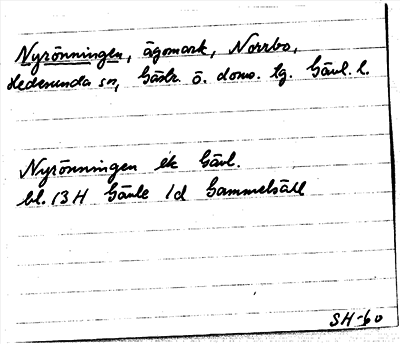 Nyrönningen, ägomark, Norrbo,
Hedesunda sn, Gästr. ö. doms. lg. Gävl. l.
Nyrönningen ek Gävl.
bl. 13H Gävle 1d Gammelsäll
SH-60